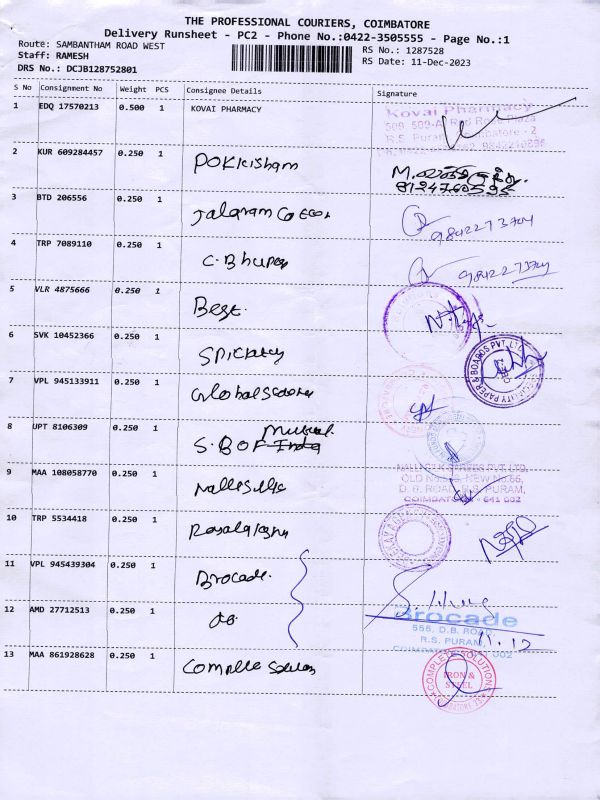 THE PROFESSIONAL COURIERS, COIMBATORE
Delivery Runsheet - PC2 - Phone No.:0422-3505555 - Page No.:1
Route: SAMBANTHAM ROAD WEST
Staff: RAMESH
DRS No.: DCJB128752801
RS No.: 1287528
RS Date: 11-Dec-2023
S No Consignment No Weight PCS Consignee Details Signature
1 EDQ 17570213 0.500 1 KOVAI PHARMACY
Kovai Pharmacy
2 KUR 609284457 0.250 1 POKKISham
3 BTD 206556 0.250 1 Jalaram
9842273704
4 TRP 7089110 0.250 1 C. Bhupas
9842273704
5 VLR 4875666 0.250 1 Best.
6 SVK 10452366 0.250 1
SECURITY PAPER & BOARDS PVT. LTD.
7 VPL 945133911 0.250 1 Global
8 UPT 8106309 0.250 1 S. BOF India Mutual.
9 MAA 108058770 0.250 1 Nalli Silks
OLD No. NEW No.66,
D.B. ROAD, R.S. PURAM,
COIMBATORE - 641 002
10 TRP 5534418 0.250 1
11 VPL 945439304 0.250 1 Brocade.
12 AMD 27712513 0.250 1 do.
Brocade
D.B. ROAD,
R.S. PURAM,
COIMBATORE 002
11.12
13 MAA 861928628 0.250 1 Complete Solutions
COMPLETE SOLUTIONS
IRON &
STEEL